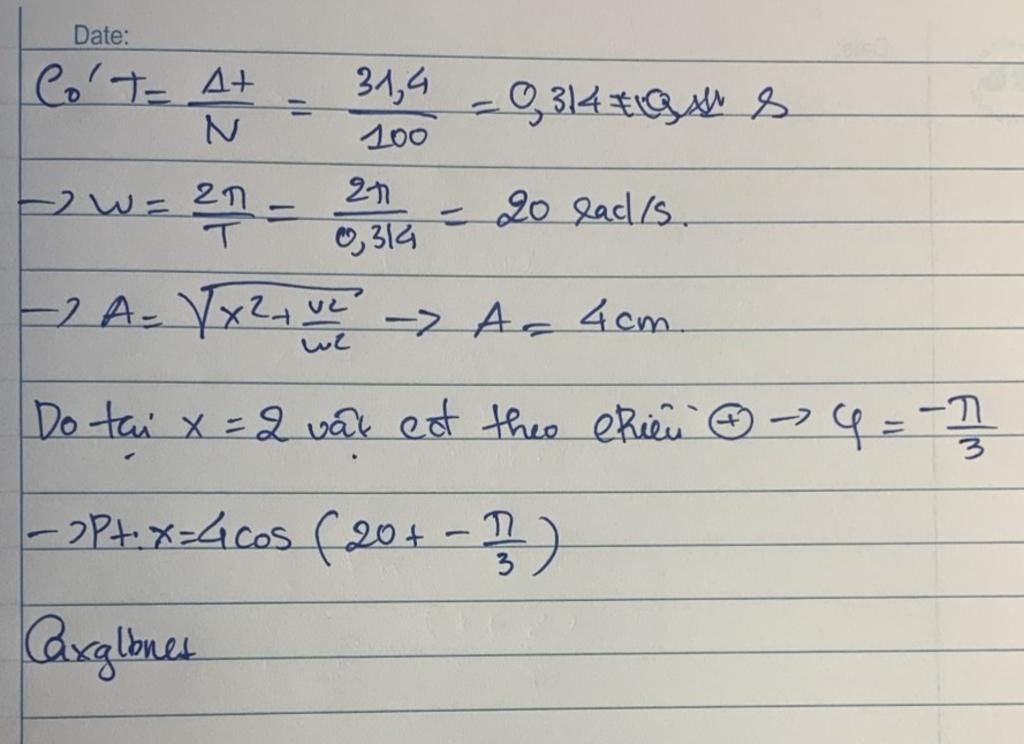 Date:
Có T = Δt/N = 31,4/100 = 0,314 s
-> W = 2π/T = 2π/0,314 = 20 rad/s.
-> A = √(x² + v²/w²) -> A = 4cm.
Do tại x = 2 vật cđ theo chiều ⊕ -> φ = -π/3
-> Pt: x = 4cos (20t - π/3)